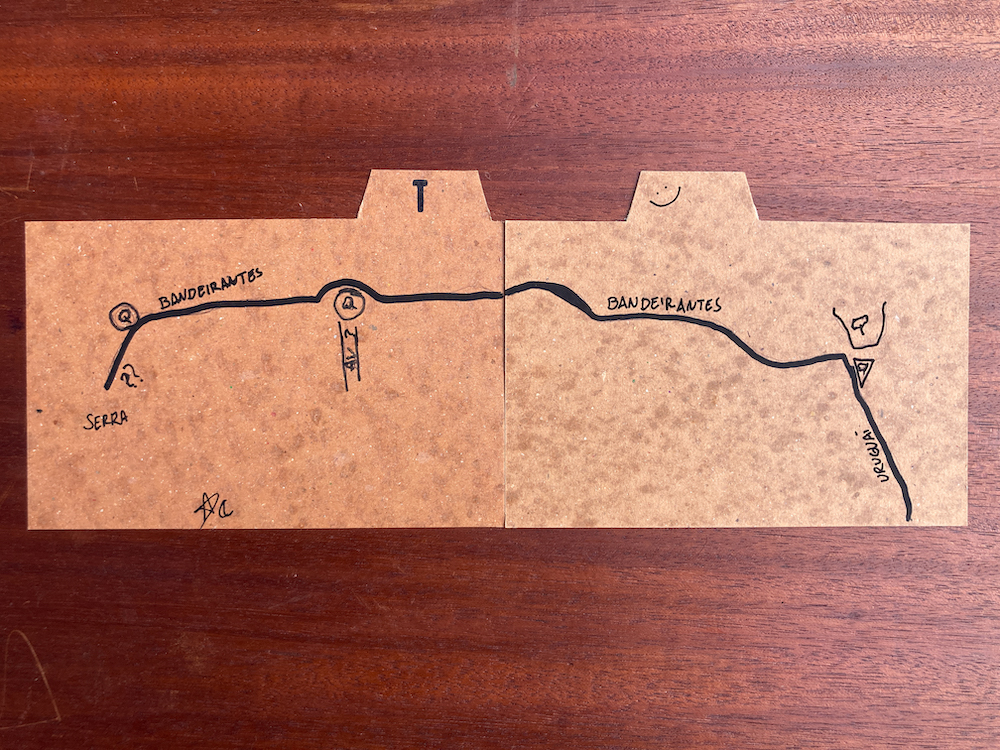 T
BANDEIRANTES
Q
Q
Av ?
??
SERRA
BANDEIRANTES
URUGUAI